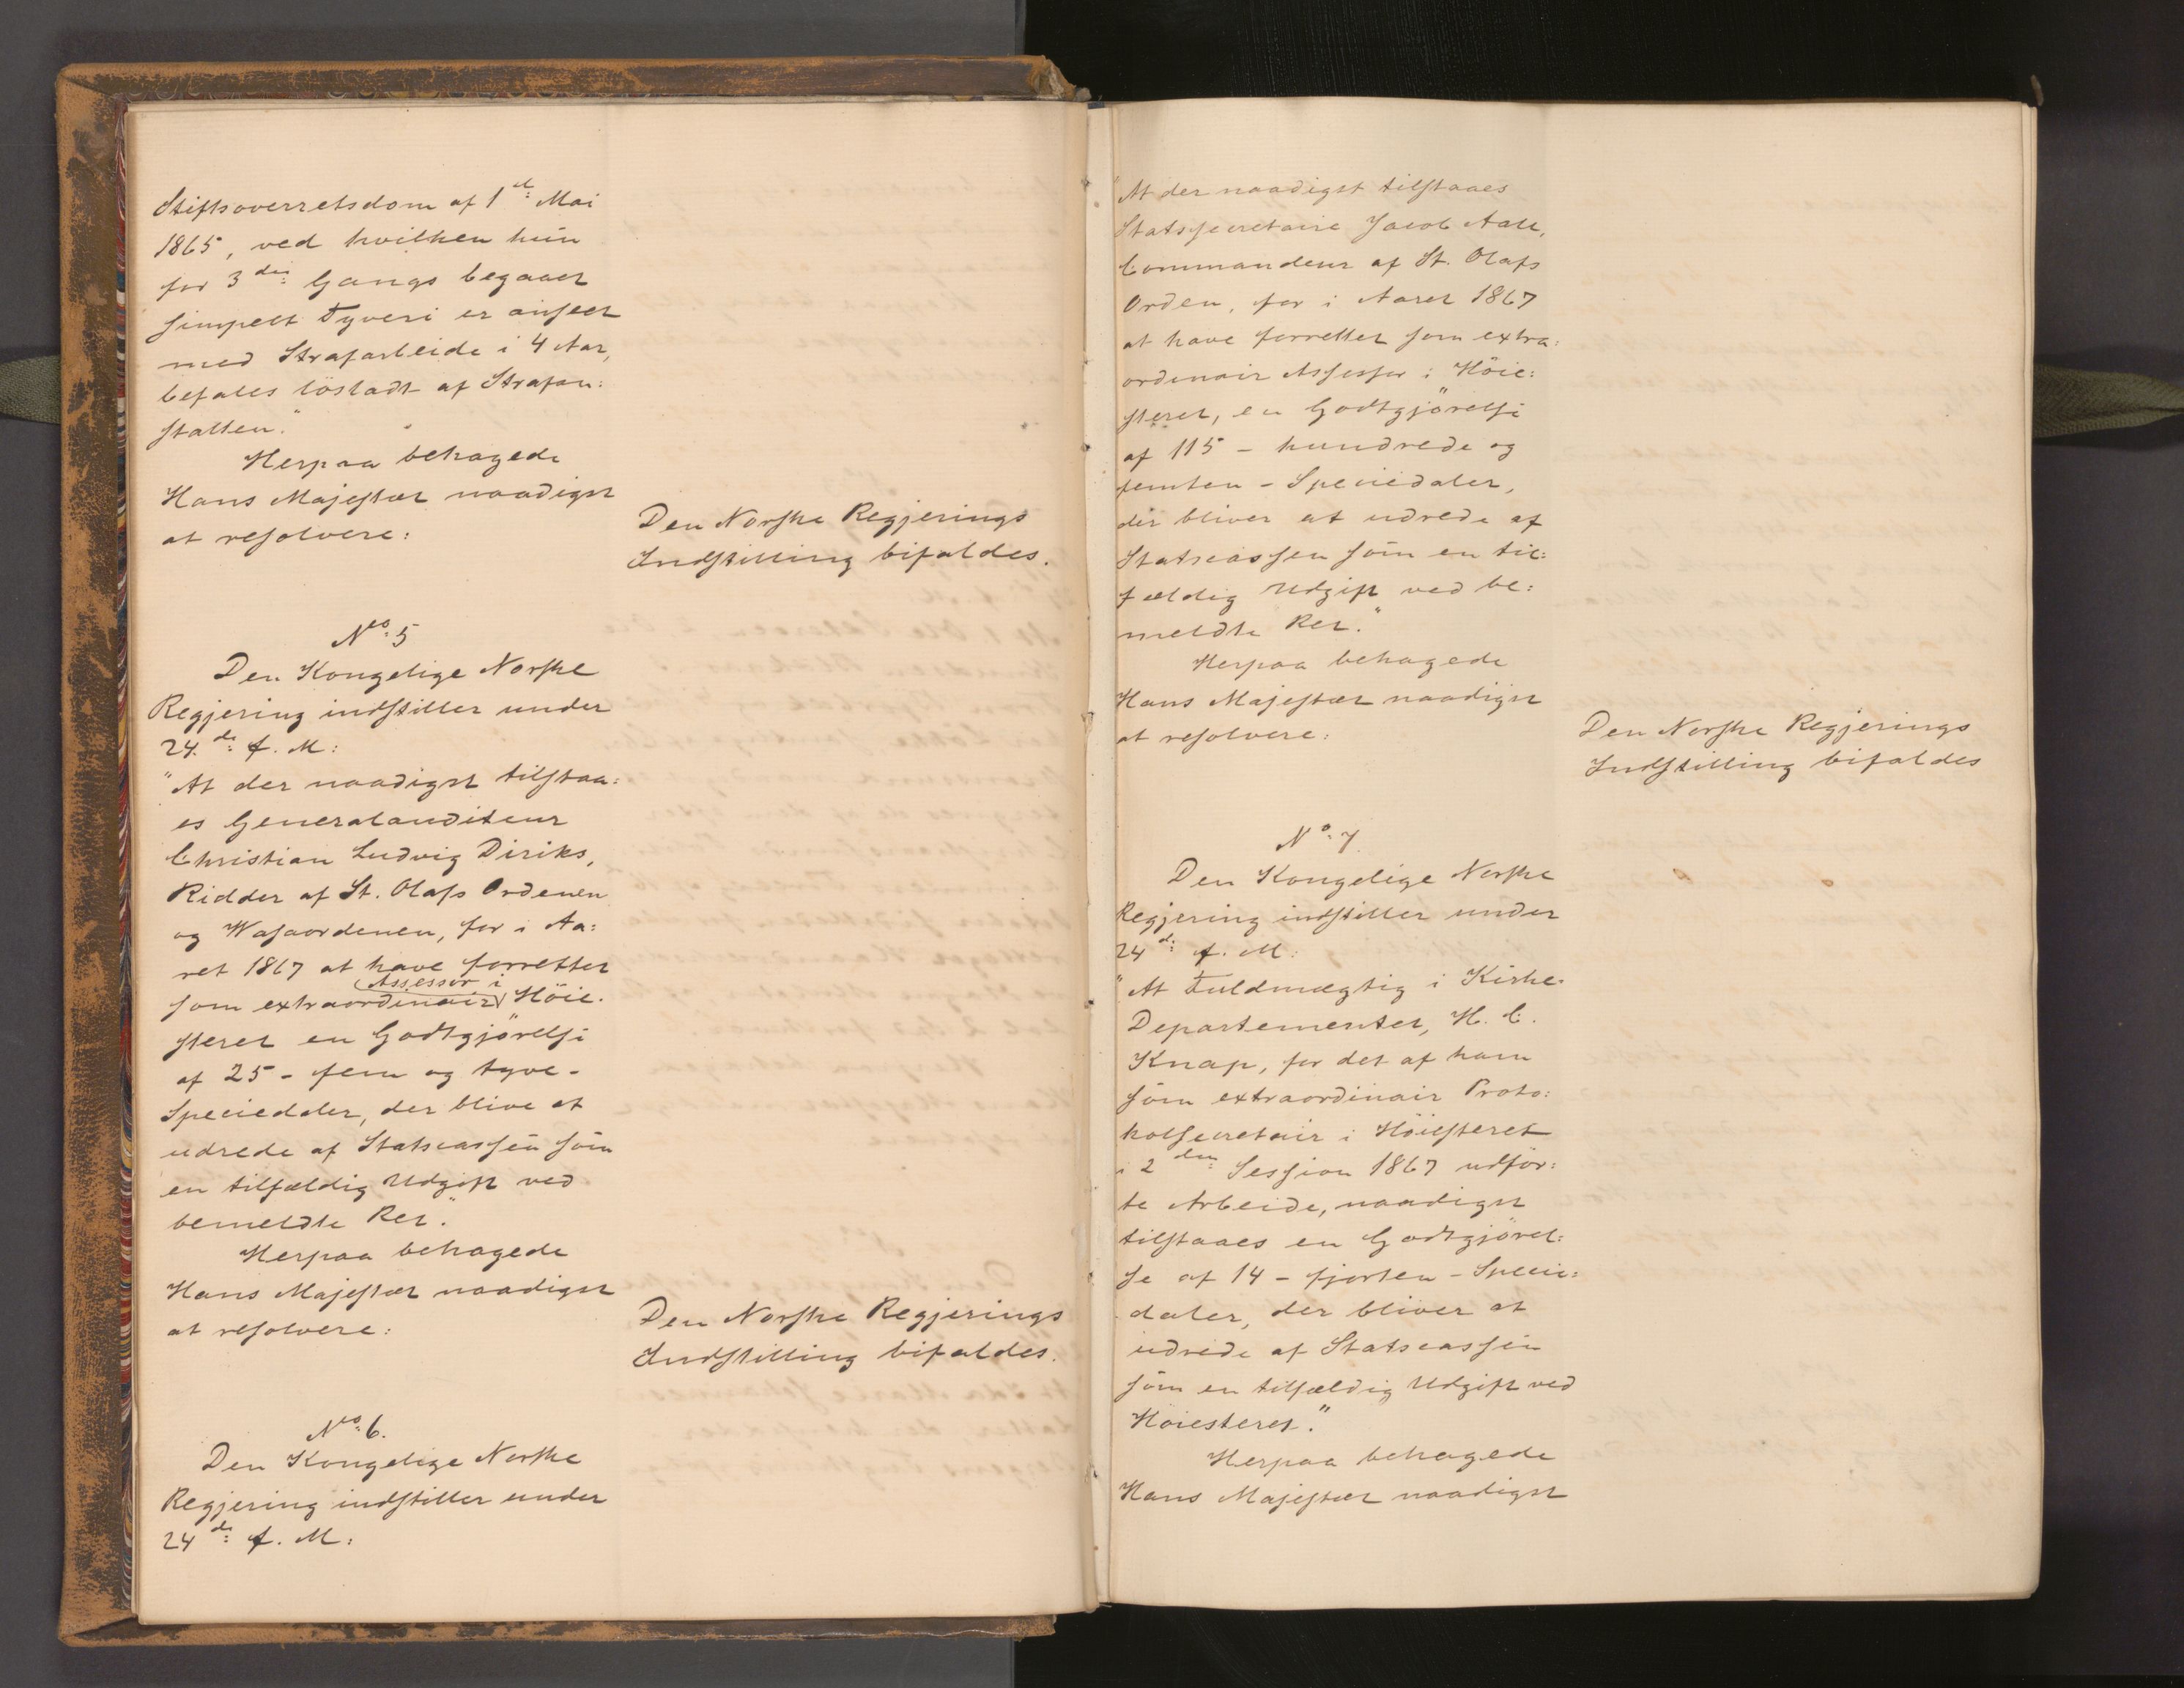 Stiftsoverretsdom af 1st: Mai
1865, ved hvilken hun
for 3die: Gangs begaaet
simpelt Tyveri er anseet
med Strafarbeide i 4 Aar,
befales løsladt af Strafan:
stalten."
Herpaa behagede
Hans Majestæt naadigst
at resolvere:
Den Norske Regjerings
Indstilling bifaldes.
No: 5
Den Kongelige Norske
Regjering indstiller under
24.de: f. M:
"At der naadigst tilstaa:
es Generalauditeur
Christian Ludvig Diriks,
Ridder af St. Olafs Ordenen
og Wasaordenen, for i Aa:
ret 1867 at have forrettet
som extraordinair Assessor i Høie:
steret en Godtgjørelse
af 25 - fem og tyve -
Speciedaler, der blive at
udrede af Statscassen som
en tilfældig Udgift ved
bemeldte Ret."
Herpaa behagede
Hans Majestæt naadigst
at resolvere:
Den Norske Regjerings
Indstilling bifaldes.
No: 6.
Den Kongelige Norske
Regjering indstiller under
24de: f. M:
"At der naadigst tilstaaes
Statssecretaire Jacob Aall,
Commandeur af St. Olafs
Orden, for i Aaret 1867
at have forrettet som extra:
ordinair Assessor i Høie:
steret, en Godtgjørelse
af 115 - hundrede og
femten - Speciedaler,
der bliver at udrede af
Statscassen som en til:
fældig Udgift ved be:
meldte Ret."
Herpaa behagede
Hans Majestæt naadigst
at resolvere:
Den Norske Regjerings
Indstilling bifaldes
No: 7.
Den Kongelige Norske
Regjering indstiller under
24d: f. M:
"At Fuldmægtig i Kirke-
Departementet, H. C.
Knap, for det af ham
som extraordinair Proto:
kolsecretair i Høiesteret
i 2den: Session 1867 udfør:
te Arbeide, naadigst
tilstaaes en Godtgjørel:
se af 14 - fjorten - Specie:
daler, der bliver at
udrede af Statscassen
som en tilfældig Udgift ved
Høiesteret."
Herpaa behagede
Hans Majestæt naadigst